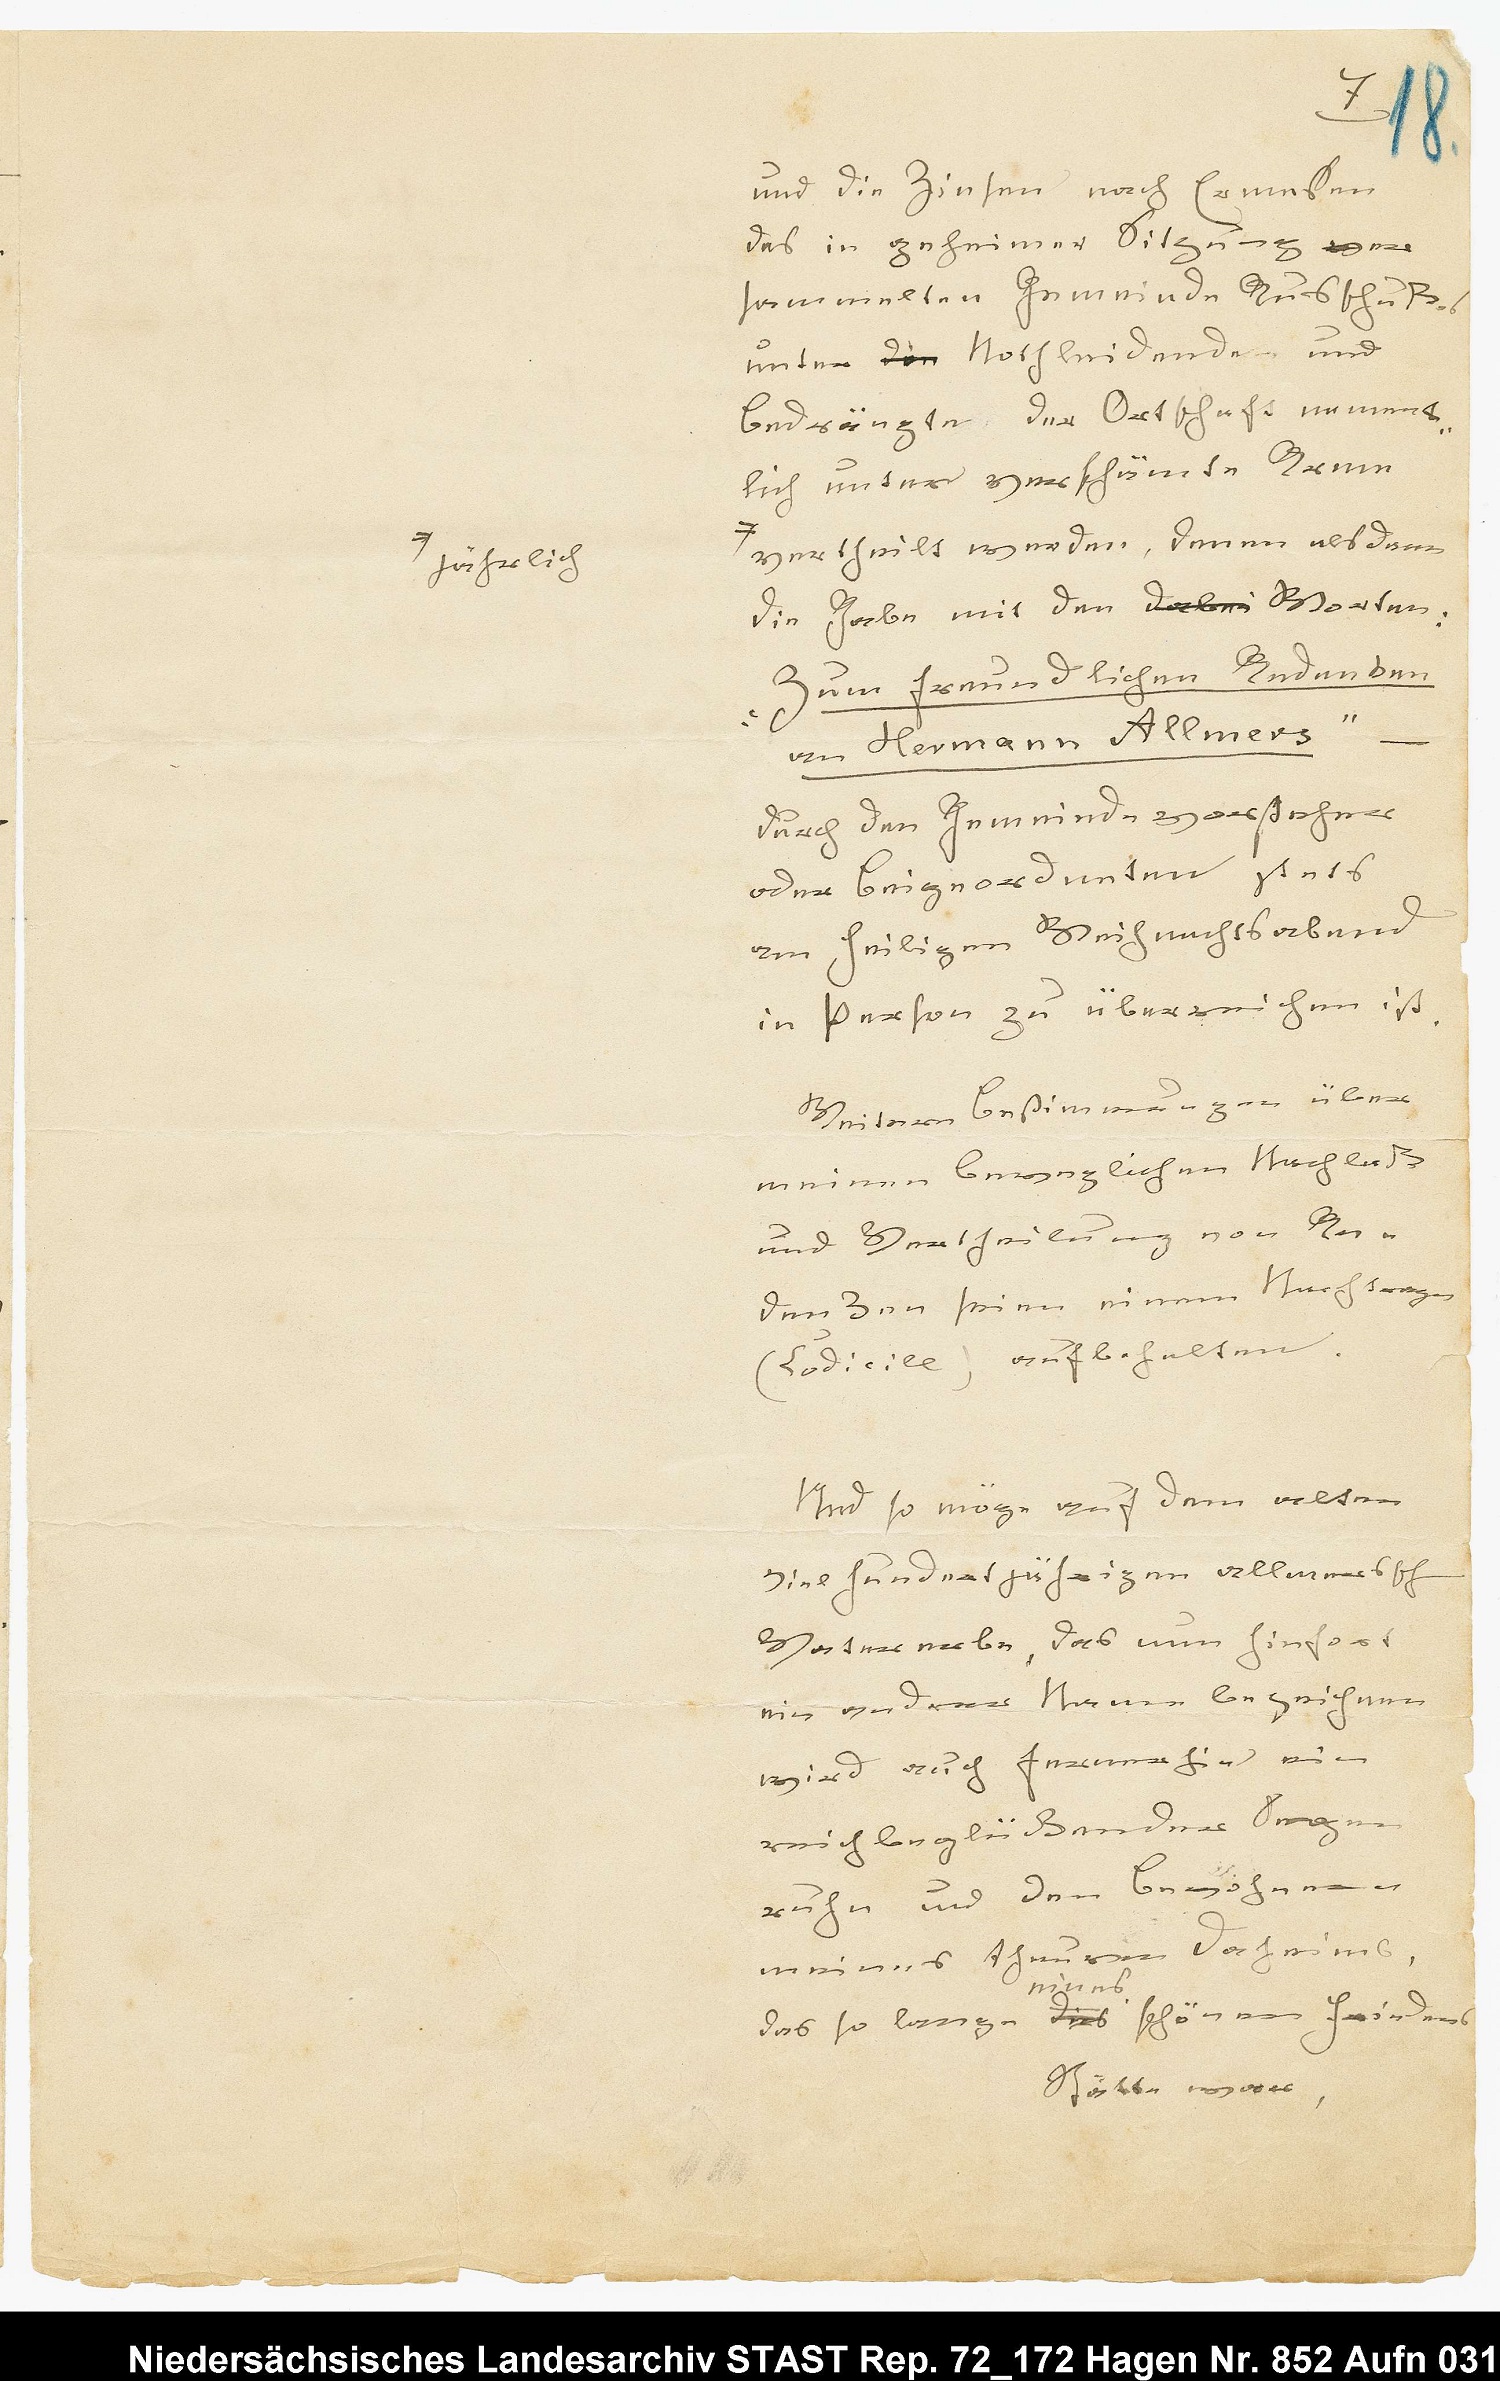 7 18.
und die Zinsen nach Ermessen
des in geheimer Sitzung ver
sammelten Gemeinde Ausschußes
unter die Nothleidenden und
bedrängte der Ortschaft nament„
lich unter verschämte Arme
⌿ jährlich
⌿ vertheilt werden, denen alsdann
die Gabe mit den dabei Worten:
„Zum freundlichen Andenken
an Hermann Allmers" —
durch den Gemeindevorsteher
oder beigeordneten stets
am heiligen Weihnachtsabend
in Person zu überreichen ist.
Weitere bestimmungen über
meinen beweglichen Nachlaß
und Vertheilung von An„
denken seien einem Nachtrage
(Codicill) aufbehalten.
Und so möge auf dem alten
vielhundertjährigen allmerssch
Vatererbe, das nun hinfort
ein anderer Name bezeichnen
wird auch fernerhin ein
reichbeglückender Segen
ruhn und den bewohnern
meines theuren Daheims,
eines
das so lange des schönen Friedens
Stätte war,
Niedersächsisches Landesarchiv STAST Rep. 72_172 Hagen Nr. 852 Aufn 031